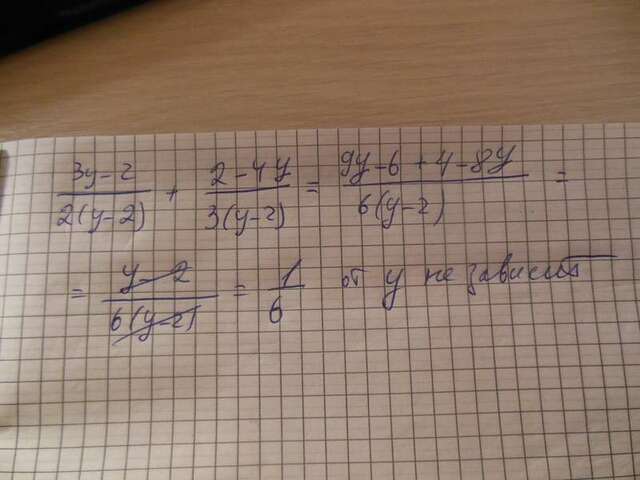 (3y-2)/(2(y-2)) + (2-4y)/(3(y-2)) = (9y-6+4-8y)/(6(y-2)) =
= (y-2)/(6(y-2)) = 1/6 от y не зависит